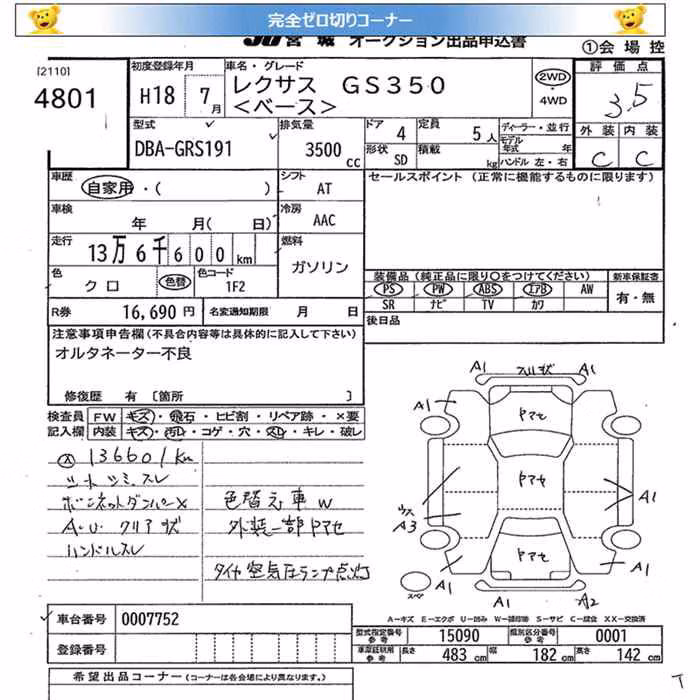 完全ゼロ切りコーナー
JU 宮城 オークション出品申込書
①会場控
[2110]
4801
初度登録年月
H18 7月
車名・グレード
レクサス GS350
<ベース>
2WD
・
4WD
評価点
3.5
外装 内装
C C
型式
DBA-GRS191
排気量
3500cc
ドア 4
定員 5人
形状 SD
積載 kg
ディーラー・並行
モデル年式 年
ハンドル 左・右
車歴
自家用・( )
シフト
AT
セールスポイント (正常に機能するものに限ります)
車検
年 月( 日)
冷房
AAC
走行
13万6千600km
燃料
ガソリン
色
クロ
色替
色コード
1F2
装備品 (純正品に限り○をつけてください)
PS PW ABS エアB AW
SR ナビ TV カワ
新車保証書
有・無
R券 16,690円
名変通知期限 月 日
後日品
注意事項申告欄 (不具合内容等は具体的に記入して下さい)
オルタネーター不良
修復歴 有 [箇所 ]
検査員
記入欄
FW キズ・飛石・ヒビ割・リペア跡・×要
内装 キズ・汚レ・コゲ・穴・スレ・キレ・破レ
136601Km
シートシミ、スレ
ボンネットダンパー×
A.U. クリアキズ
ハンドルスレ
色替え車W
外装一部ヤマセ
タイヤ空気圧ランプ点灯
A1 A1
A1 A1
ヤマセ
ヤマセ
ヤマセ
A3
A1
A1 A1
A1 A2
スペア
A-キズ E-エクボ U-凹み W-補修跡 S-サビ C-腐食 XX-交換済
車台番号 0007752
登録番号
型式指定番号 参考 15090
類別区分番号 参考 0001
車庫証明用 参考
長さ 483cm
幅 182cm
高さ 142cm
希望出品コーナー (コーナーは各会場により異なります。)